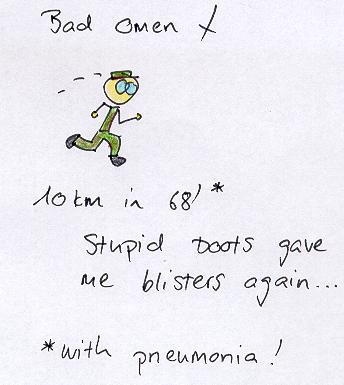 Bad omen X
10 km in 68' *
Stupid boots gave
me blisters again...
*with pneumonia!